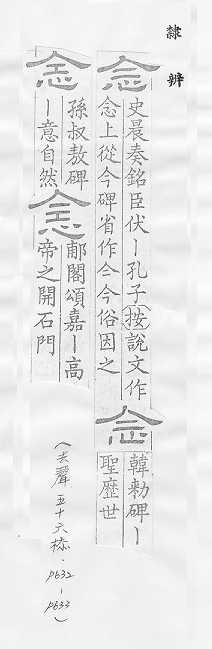 隸辨
念
史晨奏銘臣伏丨孔子按說文作
念上從今碑省作亽今俗因之
念
韓勑碑丨
聖歷世
念
孫叔敖碑
丨意自然
念
郙閣頌嘉丨高
帝之開石門
(去聲 五十六㮇. p632-p633)